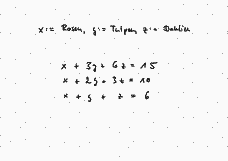 x := Rosen, y := Tulpen, z := Dahlien
x + 3y + 6z = 15
x + 2y + 3z = 10
x + y + z = 6